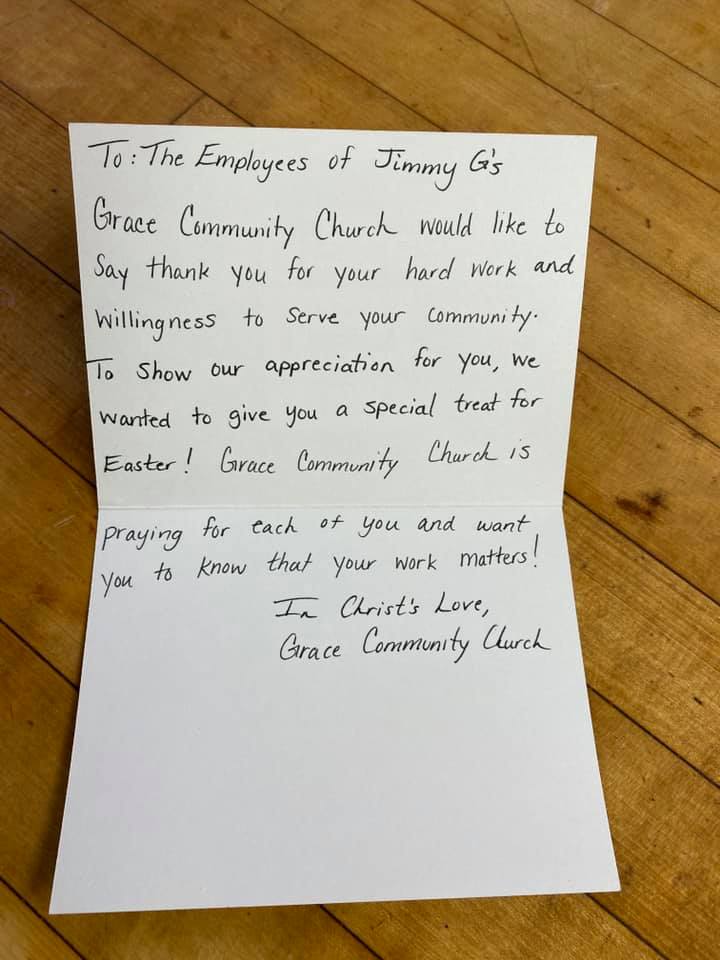 To: The Employees of Jimmy G's
Grace Community Church would like to
Say thank you for your hard work and
Willingness to Serve your Community.
To Show our appreciation for you, we
wanted to give you a special treat for
Easter! Grace Community Church is
praying for each of you and want
you to know that your work matters!
In Christ's Love,
Grace Community Church